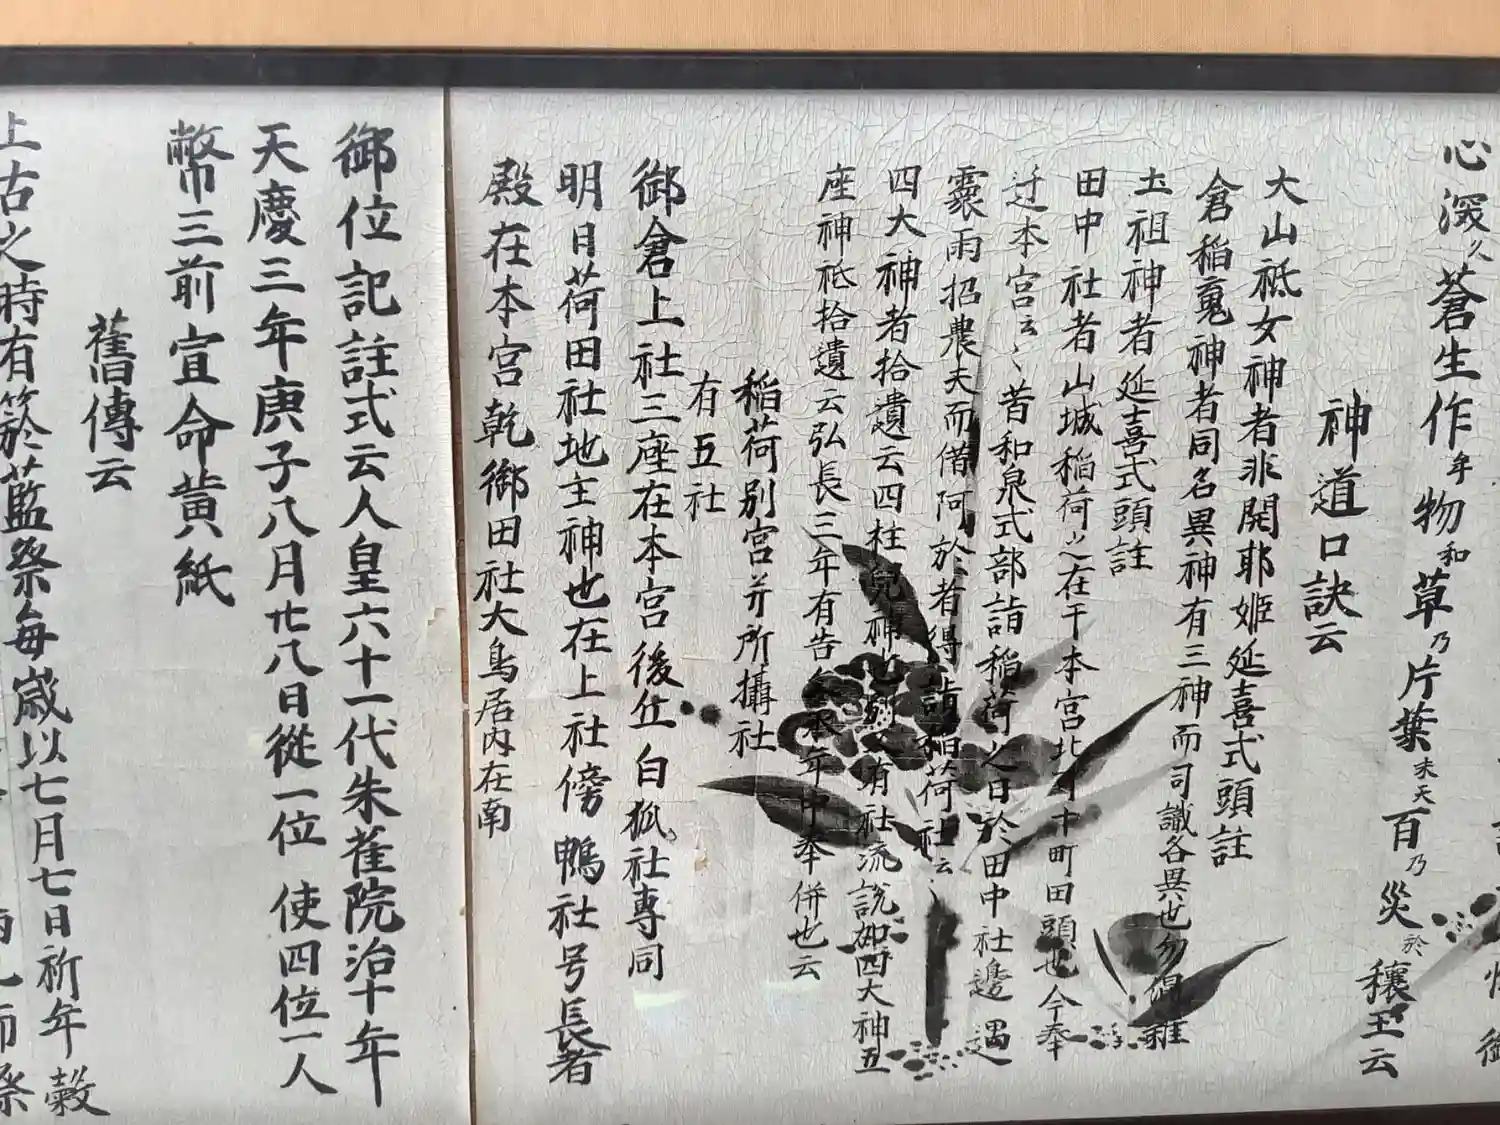 心深久蒼生作牟物和草乃片葉末天百乃災於穰王云
神道口訣云
大山祗女神者非開耶姫延喜式頭註
倉稲䰟神者同名異神有三神而司識各異也勿混雜
土祖神者延喜式頭註
田中社者山城稲荷之在于本宮北可十町田頭也今奉
迁本宮云〻昔和泉式部詣稲荷之日於田中社邊遇
霖雨招農夫而借阿於者得詣稲荷社云〻
四大神者拾遺云四柱兒神也有社流說如四大神五
座神祗拾遺云弘長三年有告年中奉併也云
稲荷別宮并所攝社
有五社
御倉上社三座在本宮後丘白狐社專同
明日荷田社地主神也在上社傍鴨社号長者
殿在本宮乾御田社大鳥居内在南
御位記註式云人皇六十一代朱雀院治十年
天慶三年庚子八月廿八日從一位使四位一人
幣三前宣命黄紙
舊傳云
上古之時有篽藍祭毎歳以七月七日祈年穀